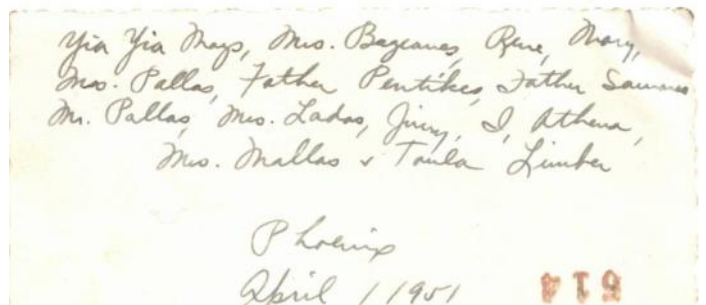 Yia Yia Mays, Mrs. Bazeanes, Rene, Mary,
Mrs. Pallas, Father Pentikes, Father
Mr. Pallas, Mrs. Ladas, Jimmy, I, Athena,
Mrs. Mallas & Toula Limber
Phoenix
April 1 1951
614